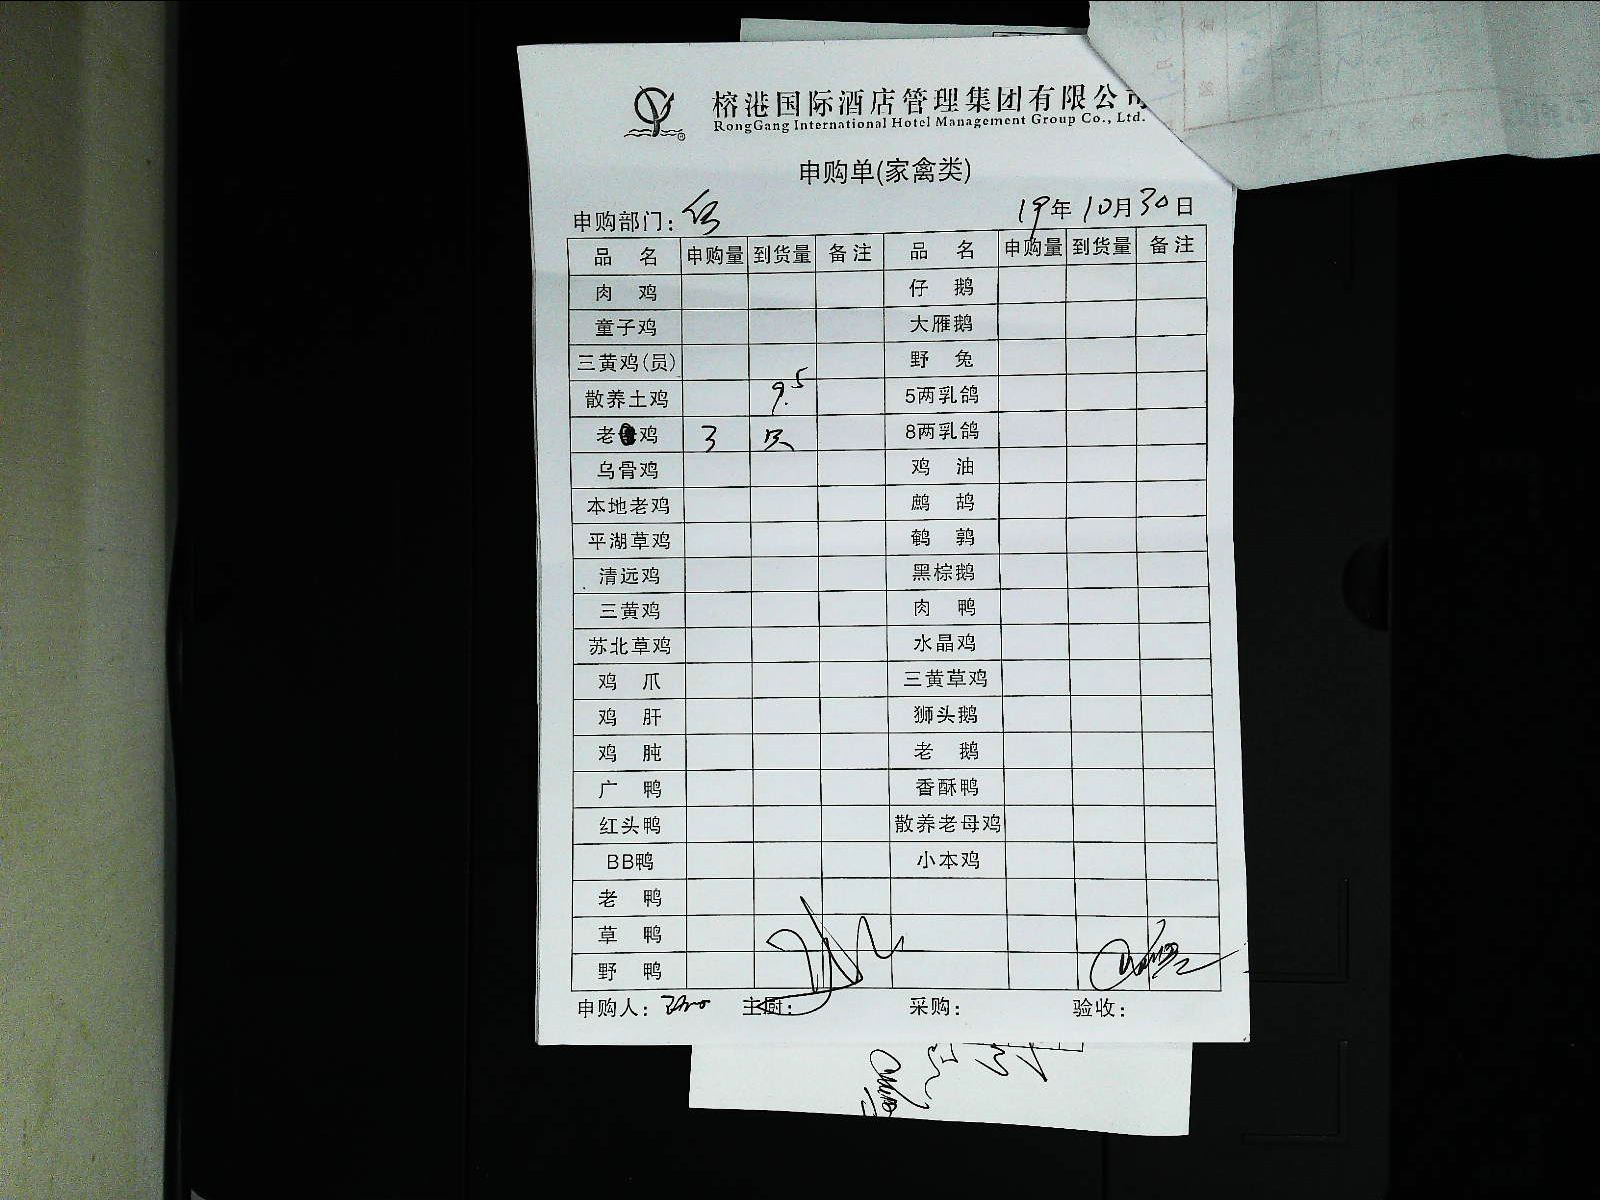 榕港国际酒店管理集团有限公司
RongGang International Hotel Management Group Co., Ltd.
申购单(家禽类)
申购部门: 19年10月30日
品名 申购量 到货量 备注 品名 申购量 到货量 备注
肉鸡 仔鹅
童子鸡 大雁鹅
三黄鸡(员) 野兔
散养土鸡 9.5 5两乳鸽
老鸡 3 只 8两乳鸽
乌骨鸡 鸡油
本地老鸡 鹧鸪
平湖草鸡 鹌鹑
清远鸡 黑棕鹅
三黄鸡 肉鸭
苏北草鸡 水晶鸡
鸡爪 三黄草鸡
鸡肝 狮头鹅
鸡肫 老鹅
广鸭 香酥鸭
红头鸭 散养老母鸡
BB鸭 小本鸡
老鸭
草鸭
野鸭
申购人: 主厨: 采购: 验收: